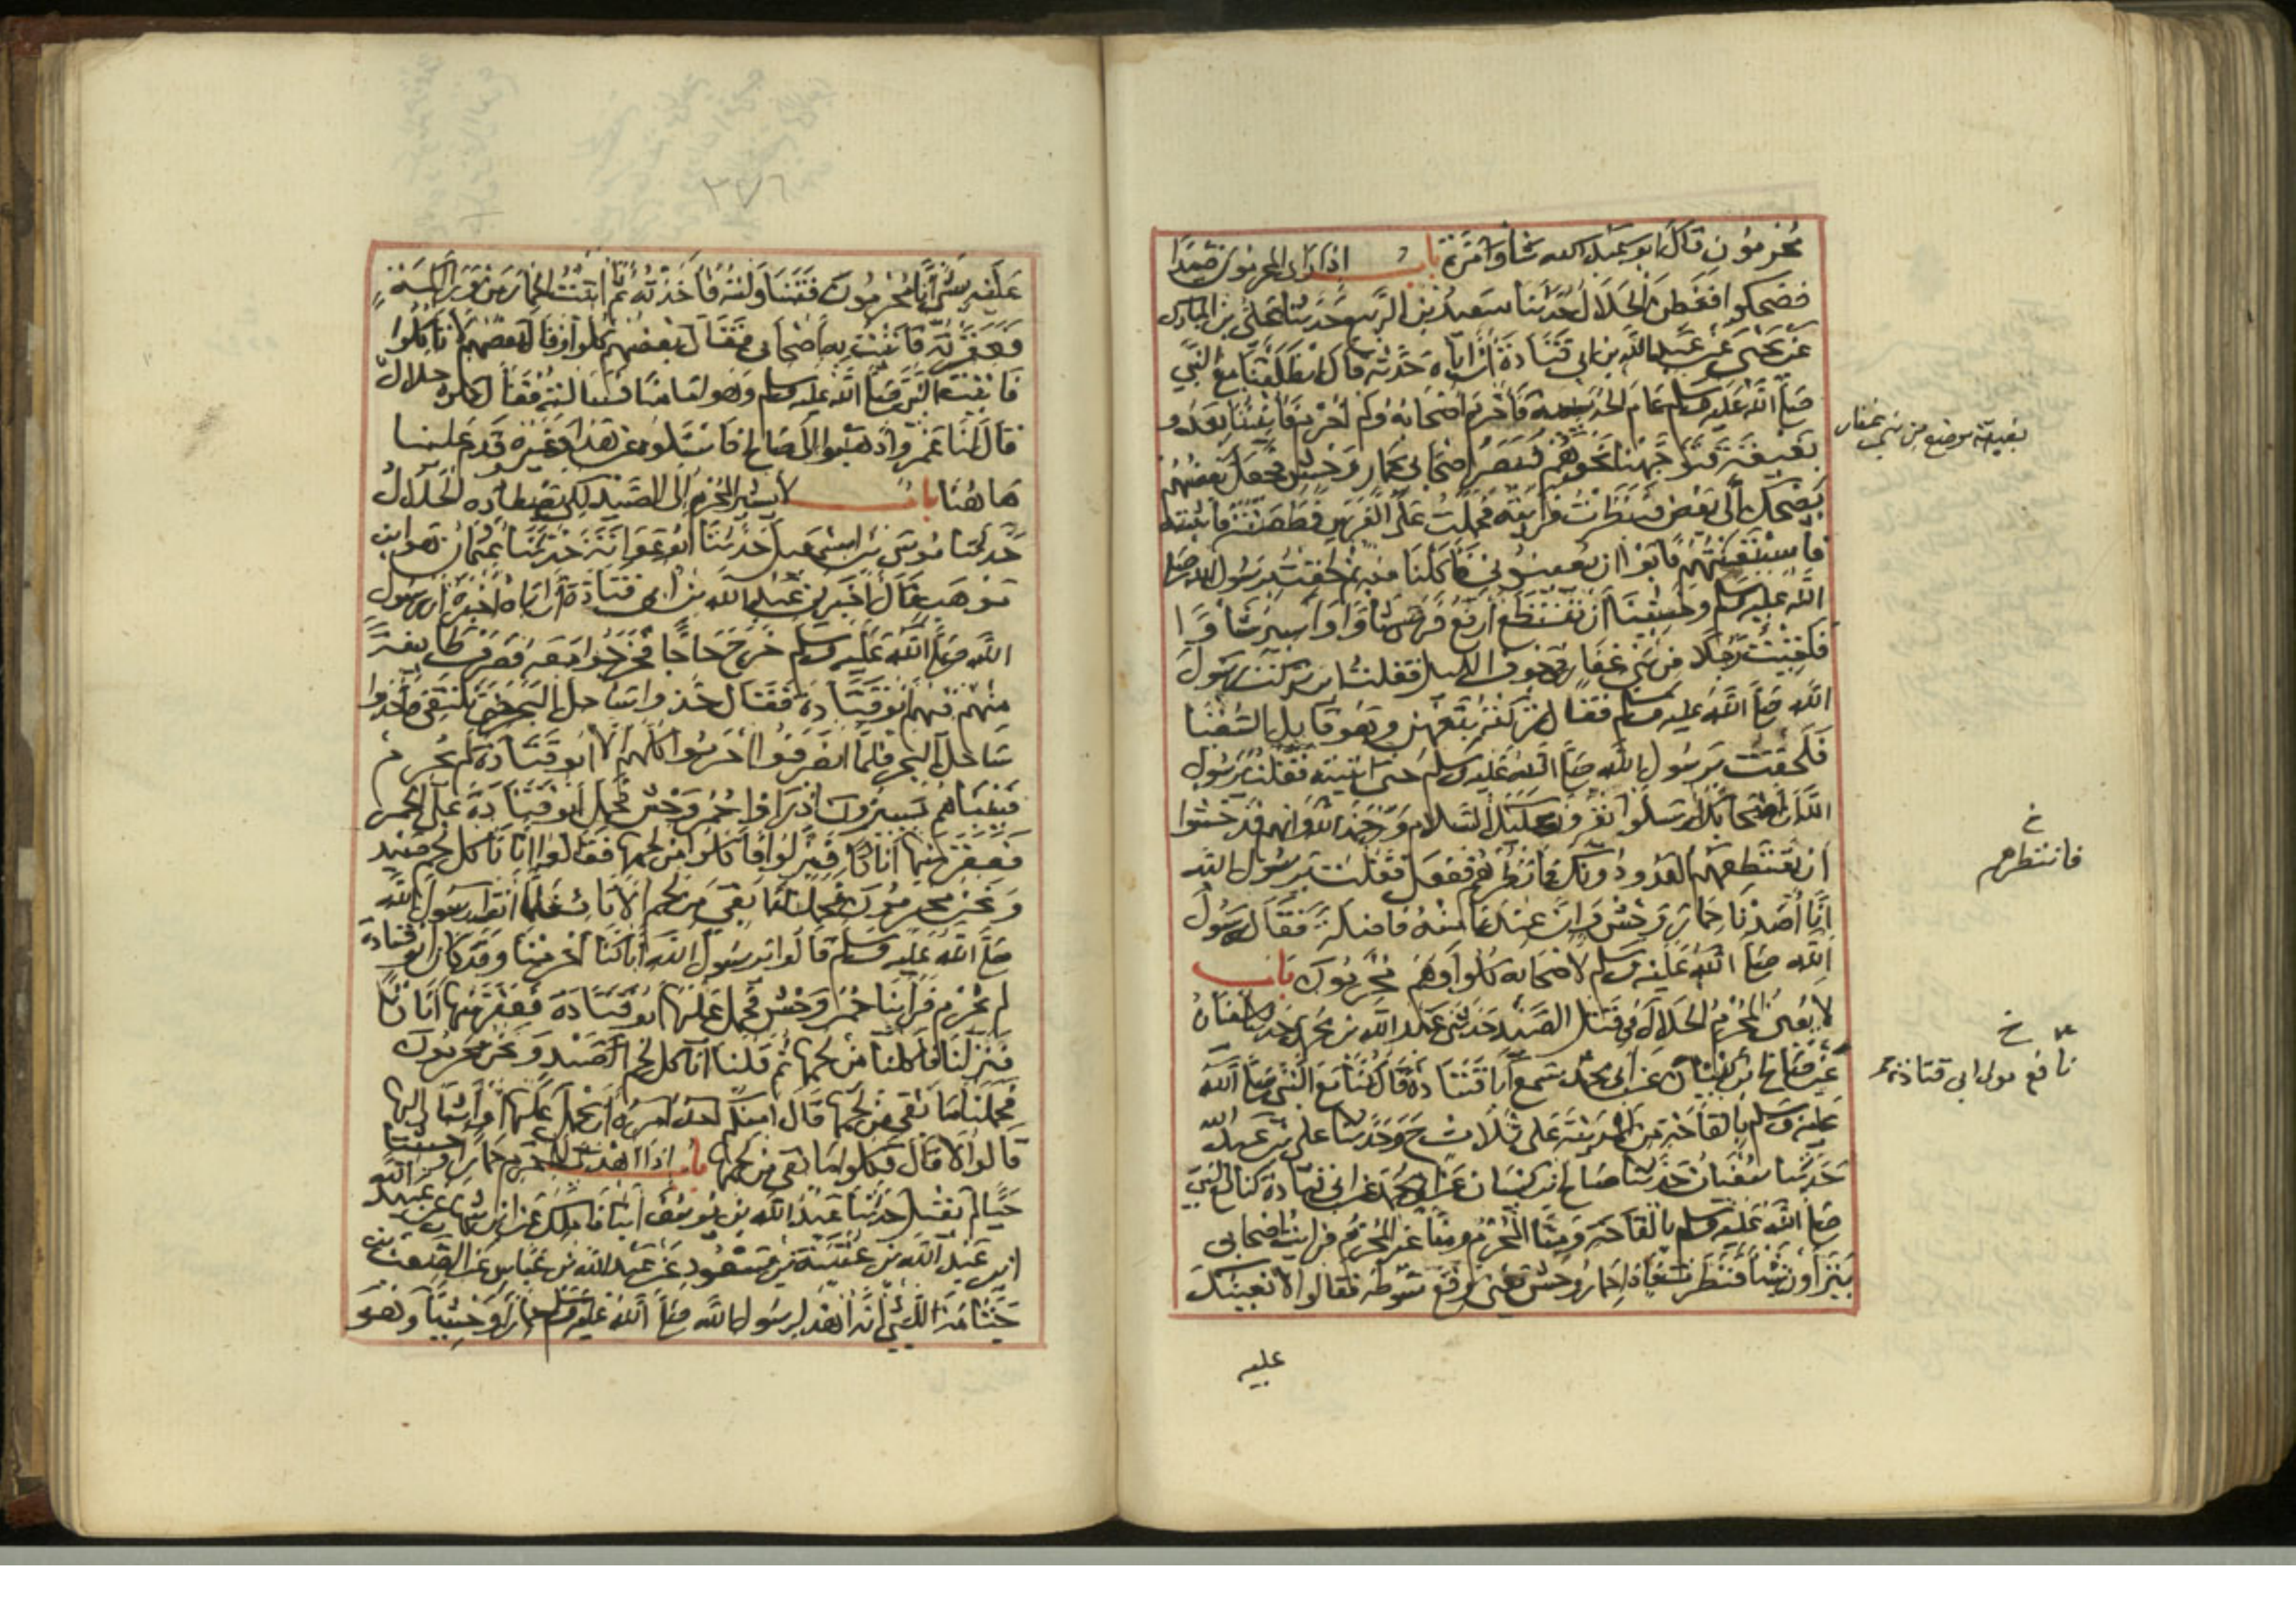 محرمون قال ابو عبد الله شأوا مرة باب اذا راى المحرمون صيدا
فضحكوا ففطن الحلال حدثنا سعيد بن الربيع حدثنا علي بن المبارك
عن يحيى عن عبد الله بن ابي قتادة ان اباه حدثه قال انطلقنا مع النبي
صلى الله عليه وسلم عام الحديبية فاحرم اصحابه ولم احرم فانبئنا بعدو
بغيقة فتوجهنا نحوهم فبصر اصحابي بحمار وحش فجعل بعضهم
يضحك الى بعض فنظرت فرايته فحملت عليه الفرس فطعنته فاثبته
فاستعنتهم فابوا ان يعينوني فاكلنا منه ثم لحقت برسول الله صلى
الله عليه وسلم وخشينا ان نقتطع ارفع فرسي شأوا واسير شأوا
فلقيت رجلا من بني غفار في جوف الليل فقلت اين تركت رسول
الله صلى الله عليه وسلم فقال تركته بتعهن وهو قايل السقيا
فلحقت برسول الله صلى الله عليه وسلم حتى اتيته فقلت يرسول
الله ان اصحابك ارسلوا يقرؤن عليك السلام ورحمة الله وانهم قد خشوا
ان يقتطعهم العدو دونك فانظرهم ففعل فقلت يرسول الله
انا اصدنا حمار وحش وان عندنا منه فاضلة فقال رسول
الله صلى الله عليه وسلم لاصحابه كلوا وهم محرمون باب
لا يعين المحرم الحلال في قتل الصيد حدثني عبد الله بن محمد حدثنا سفيان
عن صالح بن كيسان عن ابي محمد سمع ابا قتادة قال كنا مع النبي صلى الله
عليه وسلم بالقاحة من المدينة على ثلاث ح وحدثنا علي بن عبد الله
حدثنا سفيان حدثنا صالح ابن كيسان عن ابي محمد عن ابي قتادة كنا مع النبي
صلى الله عليه وسلم بالقاحة ومنا المحرم ومنا غير المحرم فرايت اصحابي
يتراون شيأ فنظرت فاذا حمار وحش يعني وقع سوطه فقالوا لا نعينك
عليه
بغيقة موضع من بني غفار
خ
فانتظرهم
خ
نافع مولى ابي قتادة
٢٧٦
عليه بشئ انا محرمون فتناولته فاخذته ثم اتيت الحمار من وراء اكمة
فعقرته فاتيت به اصحابي فقال بعضهم كلوا وقال بعضهم لا تاكلوا
فاتيت النبي صلى الله عليه وسلم وهو امامنا فسالته فقال كلوه حلال
قال لنا عمرو اذهبوا الى صالح فاسئلوه عن هذا وغيره وقدم علينا
هاهنا باب لا يشير المحرم الى الصيد لكي يصطاده الحلال
حدثنا موسى بن اسمعيل حدثنا ابو عوانة حدثنا عثمان هو ابن
موهب قال اخبرني عبد الله بن ابي قتادة ان اباه اخبره ان رسول
الله صلى الله عليه وسلم خرج حاجا فخرجوا معه فصرف طايفة
منهم فيهم ابو قتادة فقال خذوا ساحل البحر حتى نلتقي فاخذوا
ساحل البحر فلما انصرفوا احرموا كلهم الا ابو قتادة لم يحرم
فبينما هم يسيرون اذ راوا حمر وحش فحمل ابو قتادة على الحمر
فعقر منها اتانا فنزلوا فاكلوا من لحمها فقالوا انا ناكل لحم صيد
ونحن محرمون فحملنا ما بقي من لحم الاتان فلما اتوا رسول الله
صلى الله عليه وسلم قالوا يرسول الله انا كنا احرمنا وقد كان ابو قتادة
لم يحرم فراينا حمر وحش فحمل عليها ابو قتادة فعقر منها اتانا
فنزلنا فاكلنا من لحمها ثم قلنا اناكل لحم صيد ونحن محرمون
فحملنا ما بقي من لحمها قال امنكم احد امره ان يحمل عليها او اشار اليها
قالوا لا قال فكلوا ما بقي من لحمها باب اذا اهدى للمحرم حمارا وحشيا
حيا لم يقبل حدثنا عبد الله بن يوسف انبانا ملك عن ابن شهاب عن عبيد الله
ابن عبد الله بن عتبة بن مسعود عن عبد الله بن عباس عن الصعب بن
جثامة الليثي انه اهدى لرسول الله صلى الله عليه وسلم حمارا وحشيا وهو